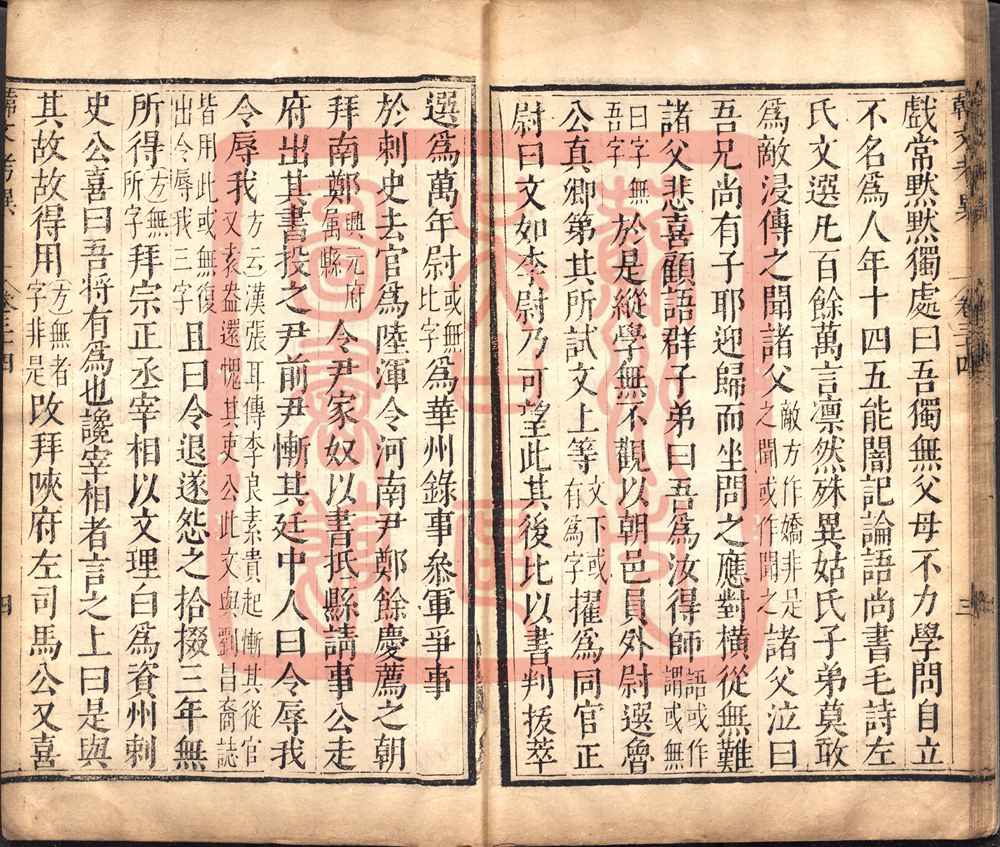 韓文考異 卷三十四 三
戲常默默獨處曰吾獨無父母不力學問自立
不名爲人年十四五能闇記論語尚書毛詩左
氏文選凡百餘萬言凛然殊異姑氏子弟莫敢
爲敵浸傳之聞諸父敵方作嬌非是之聞或作聞之諸父泣曰
吾兄尚有子耶迎歸而坐問之應對橫從無難
諸父悲喜顧語群子弟曰吾爲汝得師語或作謂或無
曰字無吾字於是縱學無不觀以朝邑員外尉選魯
公真卿第其所試文上等文下或有爲字擢爲同官正
尉曰文如李尉乃可望此其後比以書判拔萃
選爲萬年尉或無比字爲華州錄事叅軍爭事
於刺史去官爲陸渾令河南尹鄭餘慶薦之朝
拜南鄭興元府属縣令尹家奴以書抵縣請事公走
府出其書投之尹前尹慚其廷中人曰令辱我
令辱我方云漢張耳傳李良素貴起慚其從官又袁盎還愧其吏公此文與劉昌裔誌
皆用此或無復出令辱我三字且曰令退遂怨之拾掇三年無
所得方無所字拜宗正丞宰相以文理白爲資州刺
史公喜曰吾將有爲也讒宰相者言之上曰是與
其故故得用方無者字非是改拜陝府左司馬公又喜
韓文考異 卷三十四 四